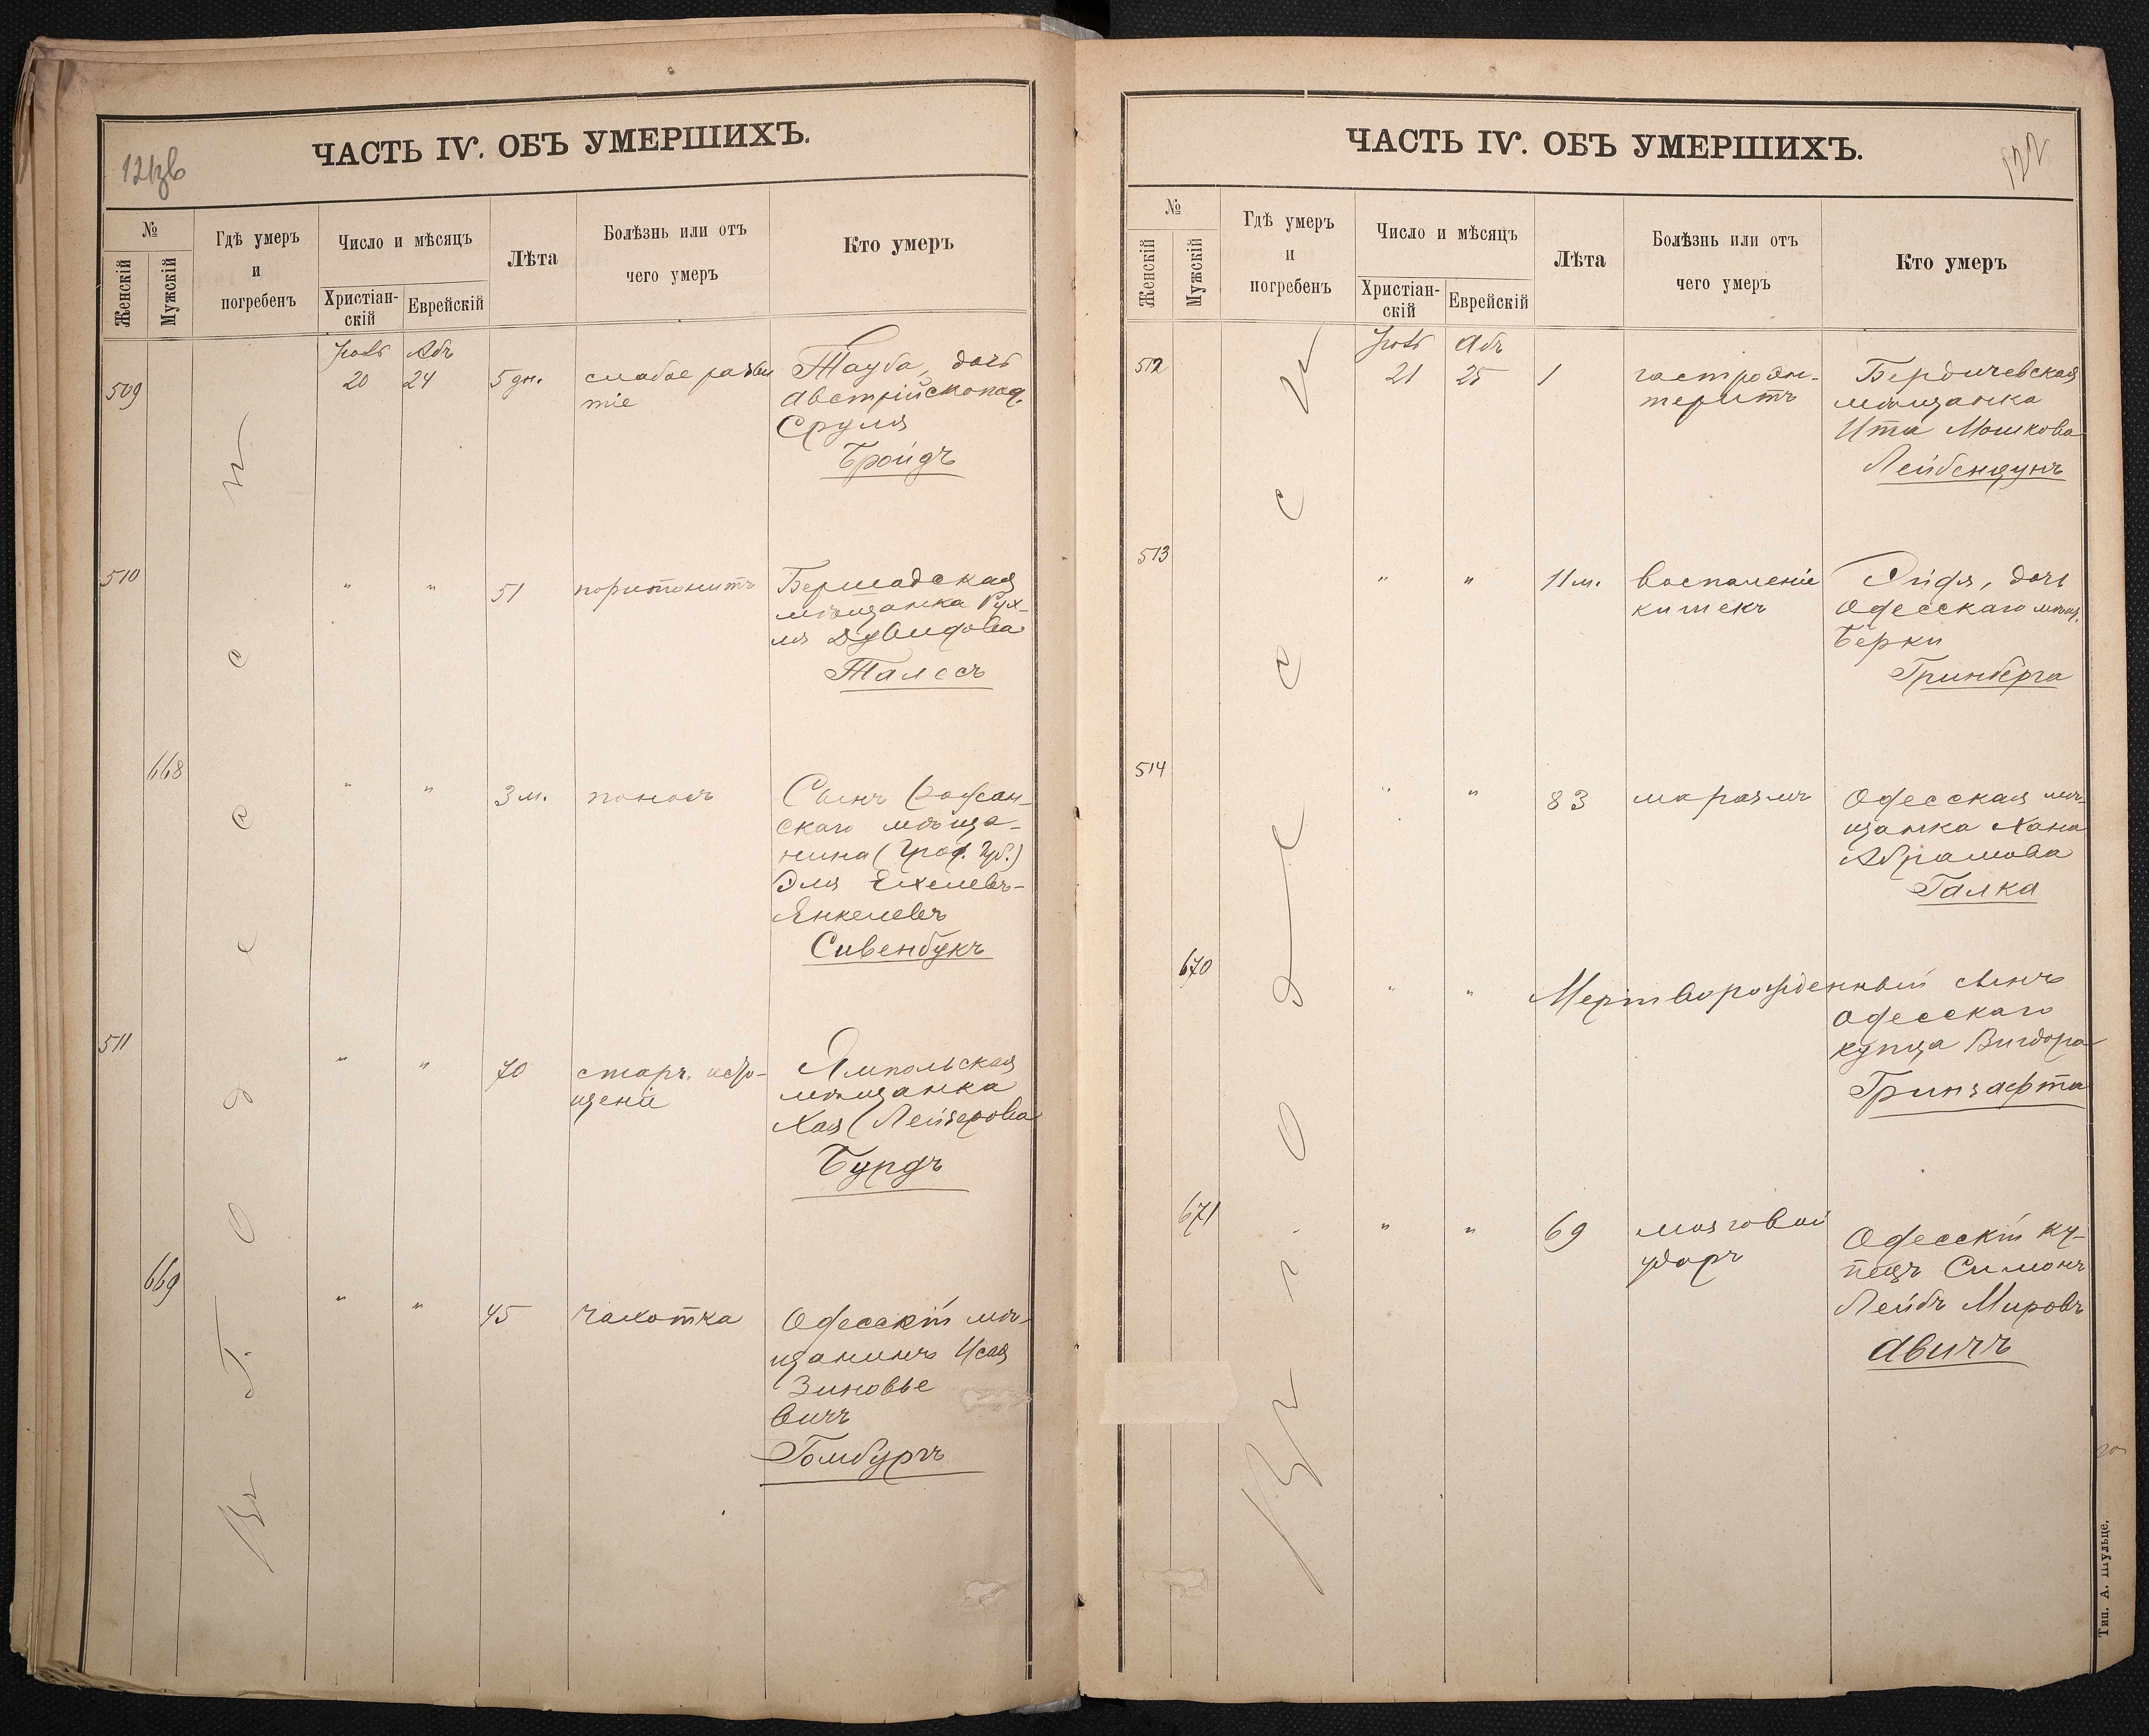 ЧАСТЬ IV. ОБЪ УМЕРШИХЪ.
№
Женскій
Мужскій
Гдѣ умеръ
и
погребенъ
Число и мѣсяцъ
Христіан-
скій
Еврейскій
Лѣта
Болѣзнь или отъ
чего умеръ
Кто умеръ
Въ Г. Одессѣ
Абъ
509
20
24
5 дн.
слабое разви
тіе
Тауба, дочь
Австрійскопод.
Сруля
Бройдъ
510
"
"
51
перитонитъ
Бершадская
мѣщанка Рух-
ля Давидова
Талесъ
668
"
"
3 м.
поносъ
Сынъ
скаго мѣща-
нина (Грод. Губ.)
Эля Ехелевъ-
Янкелевъ
Сивенбукъ
511
"
"
70
старч. исто-
щеніе
Ямпольская
мѣщанка
Хая Лейзерова
Бурдъ
669
"
"
45
чахотка
Одесскій мѣ-
щанинъ Исай
Зиновье
вичъ
Гомбургъ
ЧАСТЬ IV. ОБЪ УМЕРШИХЪ.
122
№
Женскій
Мужскій
Гдѣ умеръ
и
погребенъ
Число и мѣсяцъ
Христіан-
скій
Еврейскій
Лѣта
Болѣзнь или отъ
чего умеръ
Кто умеръ
Въ г. Одессѣ
Абъ
512
21
25
1
гастроэн-
теритъ
Бердичевская
мѣщанка
Ита Мошкова
Лейбенцунъ
513
"
"
11 м.
воспаленіе
кишекъ
дочь
Одесскаго мѣщ.
Берки
Гринберга
514
"
"
83
маразмъ
Одесская мѣ-
щанка Хана
Абрамова
Галка
670
"
"
Мертворожденный сынъ
Одесскаго
купца Вигдора
Гринзафта
671
"
"
69
мозговой
ударъ
Одесскій ку-
пецъ Симонъ
Лейбъ Мировъ
Авичъ
Тип. А. Шульце.